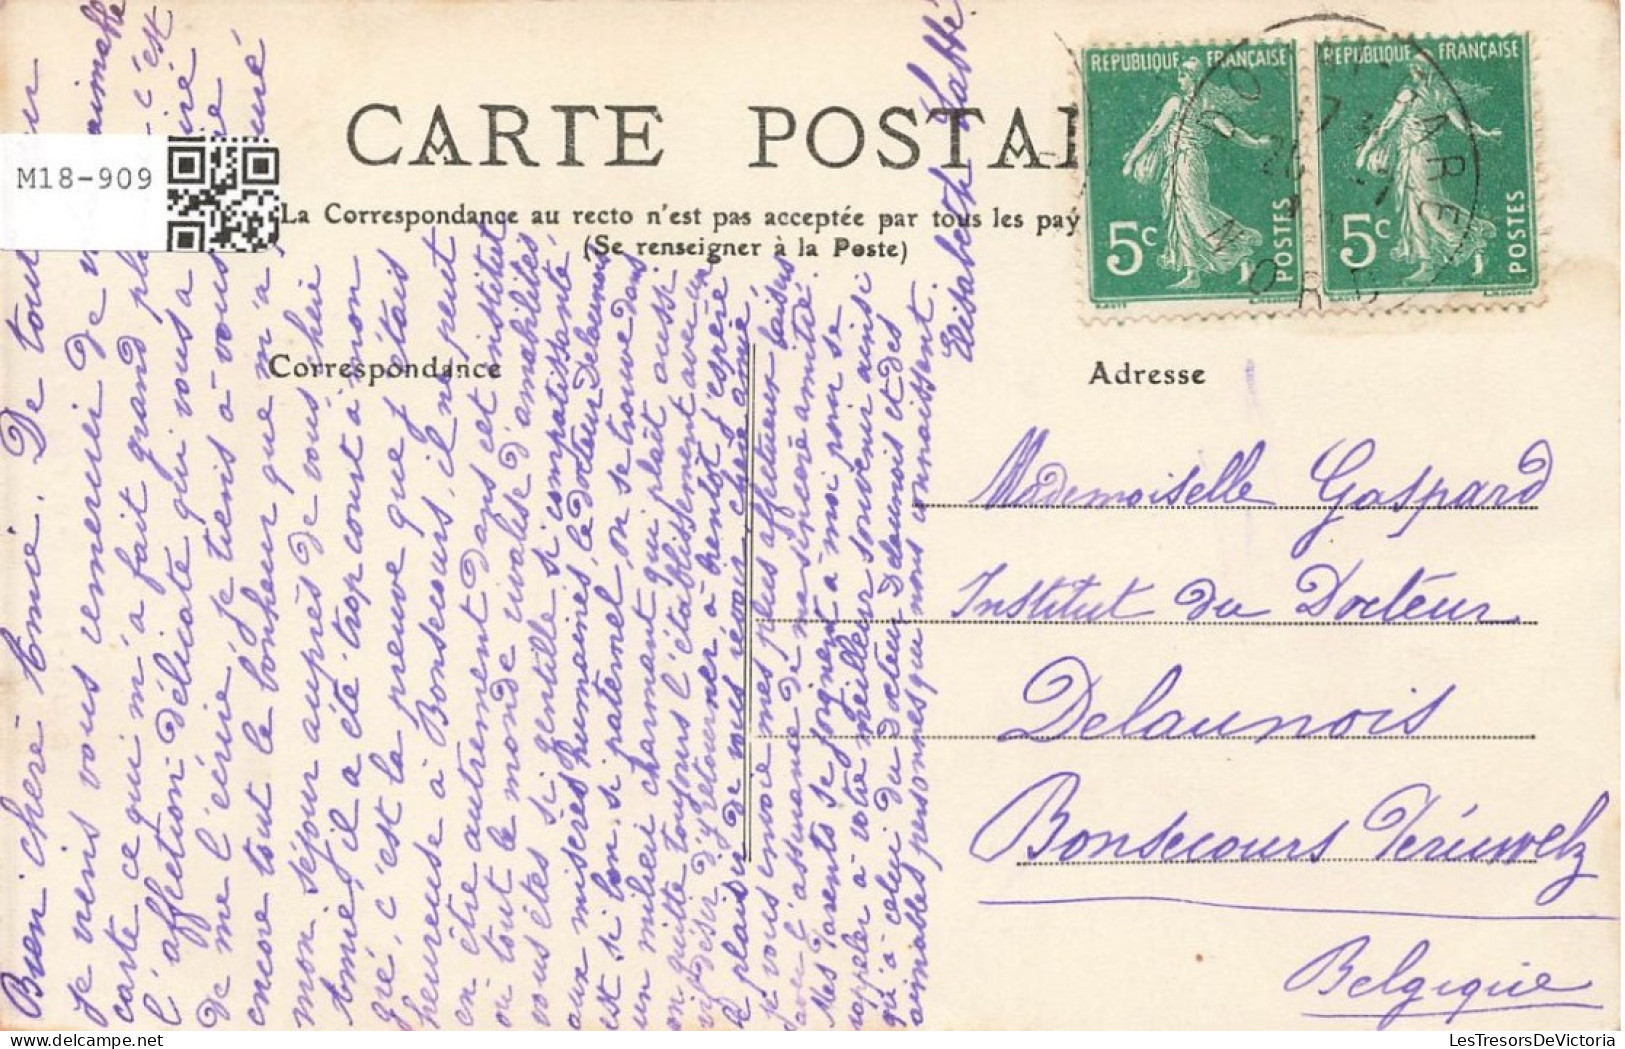 M18-909
CARTE POSTAL
La Correspondance au recto n'est pas acceptée par tous les pay
(Se renseigner à la Poste)
Correspondance
Adresse
REPUBLIQUE FRANÇAISE
5c
POSTES
REPUBLIQUE FRANÇAISE
5c
POSTES
Mademoiselle Gaspard
Institut du Docteur
Delaunois
Bonsecours Péruwelz
Belgique
Bien chère Amie. De tout
je viens vous remercier de v aimable
carte ce qui m'a fait grand pl c'est
l'affection délicate qui vous a
de me l'écrire, je tiens à vous
encore tout le bonheur que m'a
mon séjour auprès de vous chère
Amie, il a été trop court à mon
gré, c'est la preuve que j'étais
heureuse à Bonsecours, il ne peut
en être autrement dans cet institut
où tout le monde rivalise d'amabilités
vous êtes si gentille si compatissante
aux misères humaines, le docteur Delaunois
est si bon, si paternel, on se trouve dans
un milieu charmant qui plaît aussi
on quitte toujours l'établissement avec un
vif désir d'y retourner à bientôt j'espère
le plaisir de vous revoir, chère amie,
je vous envoie mes plus affectueux baisers
avec l'assurance de ma sincère amitié.
Mes Parents se joignent à moi pour se
rappeler à votre meilleur souvenir ainsi
qu'à celui du docteur Delaunois et des
aimables personnes qui nous connaissent.
Elisabeth Labbé
LesTresorsDeVictoria